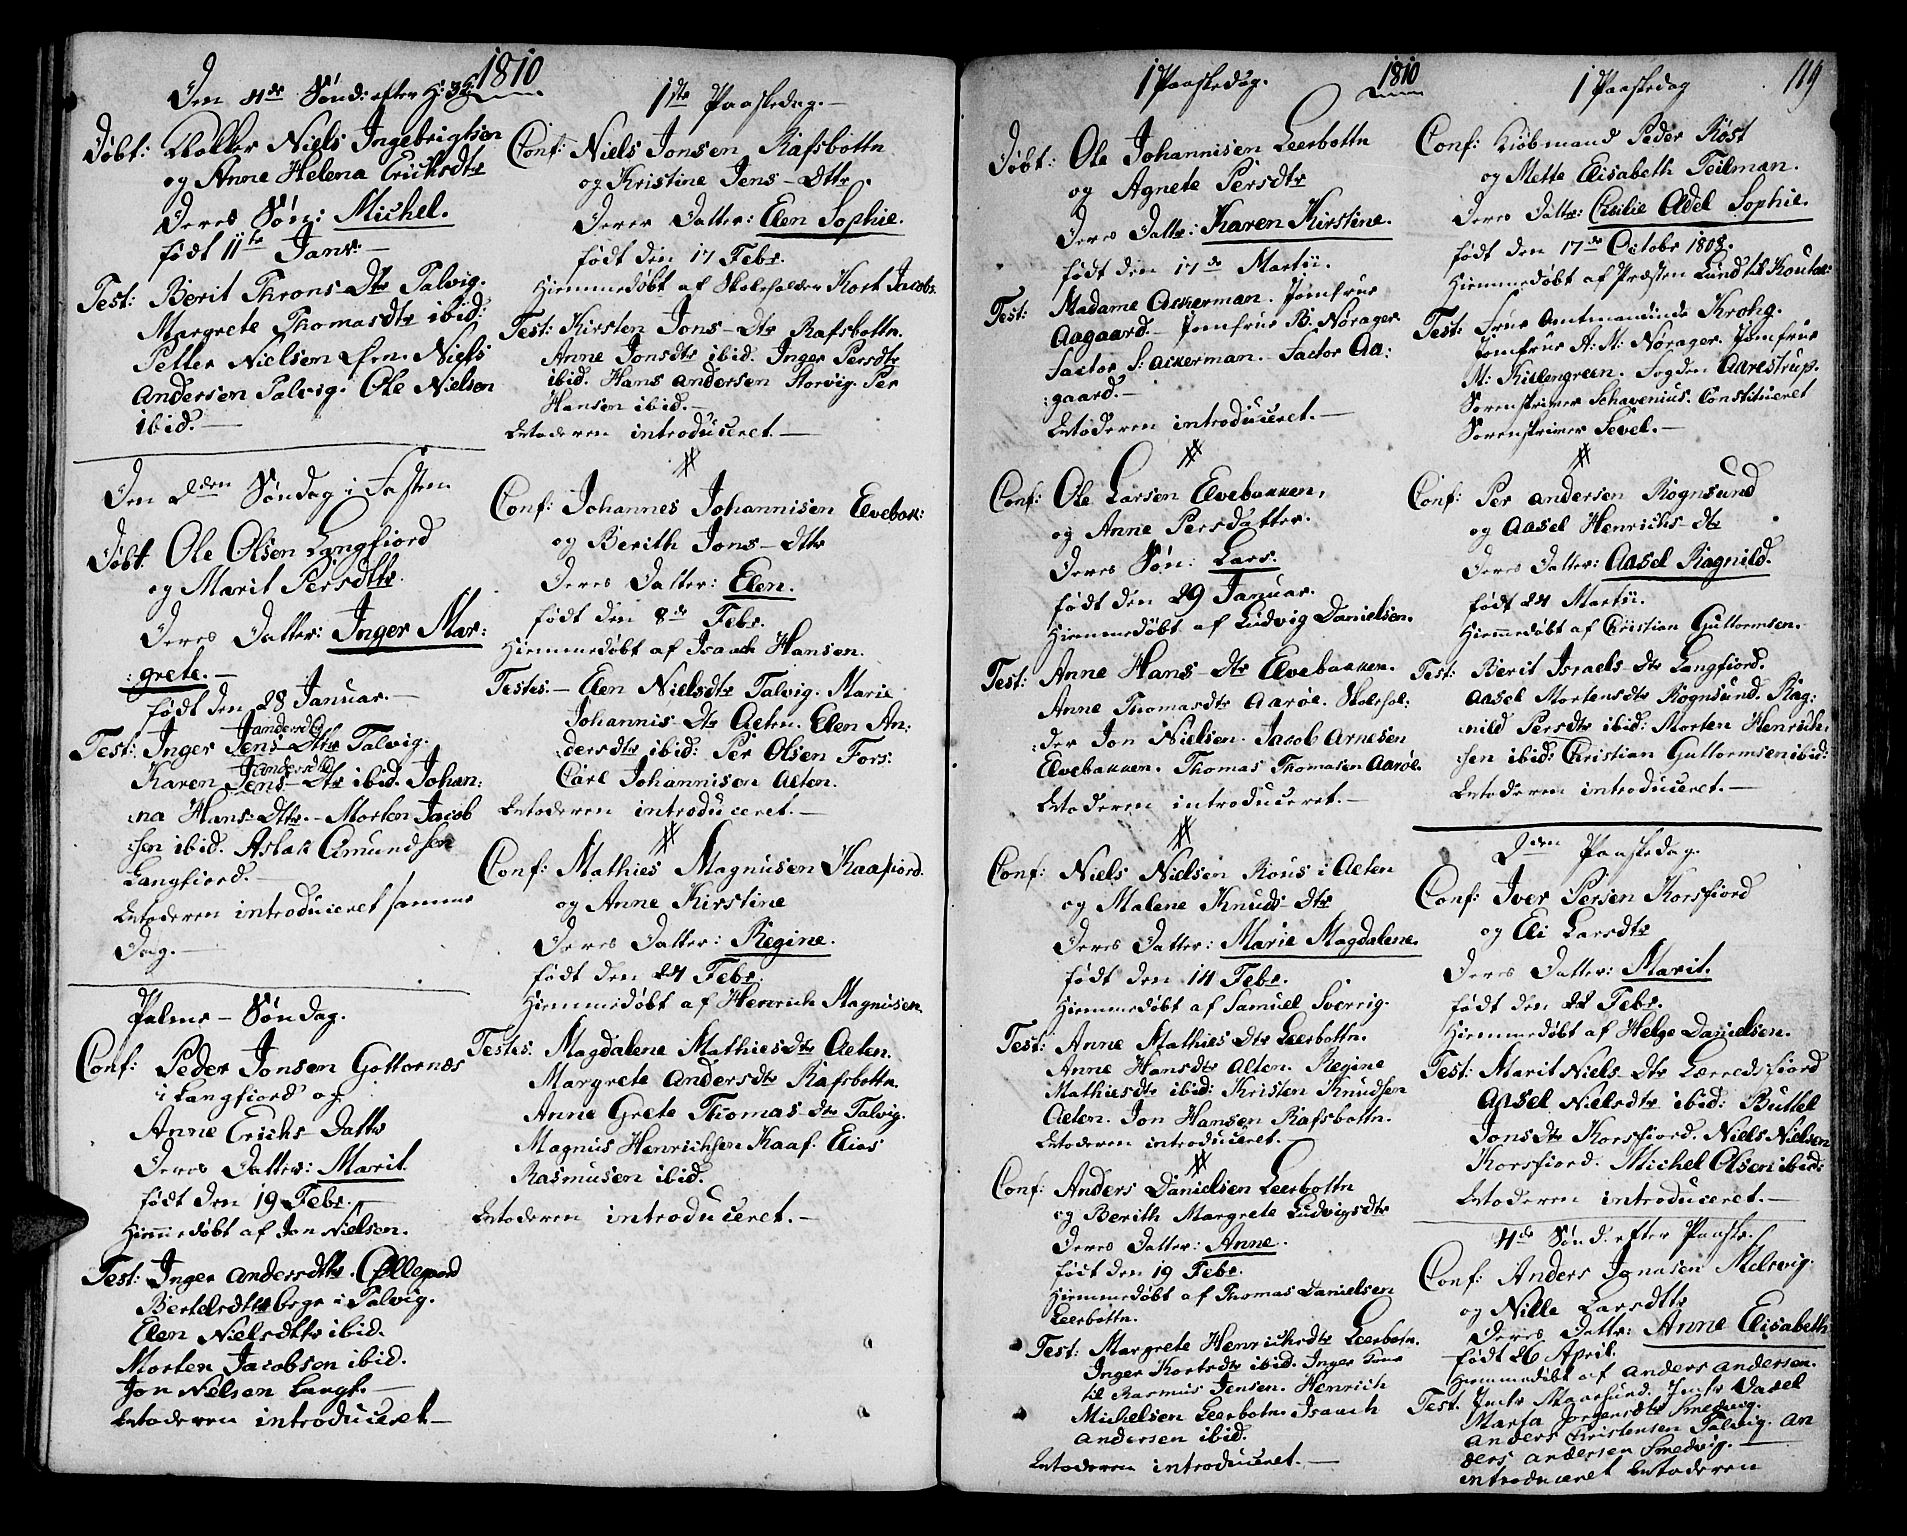 1810
Den 4de Sønd: efter H: 3 K:
Døbt: Klokker Niels Ingebrigtsen
og Anne Helena Ericksdtr
Deres Søn: Michel.
født 11te Janr:
Test: Berit Throns-Dtr Talvig.
Margrete Thomasdtr ibid:
Petter Nielsen Niels
Andersen Talvig. Ole Nielsen
ibid.
Den 2den Søndag i Fasten
Døbt. Ole Olsen Langfiord
og Marit Persdttr.
Deres Datter: Inger Mar:
:grete.
født den 28 Januar.
Test: Inger Jens-Dttr Talvig.
Karen Jens-Dtr ibid. Johan:
:na Hans-Dttr. Morten Jacob
:sen ibid. Aslak Amundsen
Langfiord.
Moderen introduceret samme
Dag.
Palme-Søndag.
Conf: Peder Jonsen Gottornæs
i Langfiord og
Anne Erichs-Datter
Deres Datter: Marit
født den 19 Febr.
Hiemmedøbt af Jon Nielsen.
Test: Inger Andersdttr.
Bertelsdttr bege i Talvig.
Elen Nielsdttr ibid.
Morten Jacobsen ibid.
Jon Nielsen Langf.
Moderen introduceret
1ste Paaskedag.
Conf: Niels Jonsen Rafsbottn
og Kristine Jens-Dttr.
Deres Datter: Elen Sophie.
født den 17 Febr.
Hiemmedøbt af Skoleholder Kort Jacobs.
Test: Kirsten Jons-Dtr Rafsbottn.
Anne Jonsdtr ibid. Inger Persdtr
ibid. Hans Andersen Storvig. Per
Hansen ibid.
Moderen introduceret.
Conf: Johannes Johannisen Elvebak:
og Berith Jons-Dttr
Deres Datter: Elen.
født den 8de Febr.
Hiemmedøbt af Isaach Hansen.
Testes. Elen Nielsdtr Talvig. Marie
Johannis-Dtr Alten. Elen An:
:dersdtr ibid: Per Olsen Fors:
Carl Johannisen Alten.
Moderen introduceret.
Conf: Mathies Magnusen Kaafiord.
og Anne Kirstine
Deres Datter: Regine.
født den 24 Febr.
Hiemmedøbt af Henrich Magnusen.
Testes: Magdalene Mathiesdtr Alten.
Margrete Andersdtr Rafsbottn.
Anne Grete Thomas-Dtr Talvig.
Magnus Henrichsen Kaaf: Elias
Rasmusen ibid.
Moderen introduceret.
1 Paaskedag.
1810
Døbt: Ole Johannisen Leerbottn
og Agnete Persdtr
Deres Dattr: Karen Kirstine.
født den 17de Martii.
Test: Madame Ackerman. Jomfrue
Aagaard. Jomfrue B. Norager
Factor S: Ackerman. Factor Aa:
:gaard.
Moderen introduceret.
Conf: Ole Larsen Elvebakken,
og Anne Persdatter.
Deres Søn: Lars.
født den 29 Januar.
Hiemmedøbt af Ludvig Danielsen.
Test: Anne Hans-Dtr Elvebakken.
Anne Thomasdtr Aarøe. Skolehol:
:der Jon Nielsen. Jacob Arnesen
Elvebakken. Thomas Thomasen Aarøe.
Moderen introduceret.
Conf: Niels Nielsen Røns i Alten
og Malene Knuds Dtr
Deres Datter: Marie Magdalene.
født den 14 Febr.
Hiemmedøbt af Samuel Sverrig.
Test: Anne Mathies Dtr Leerbottn.
Anne Hansdtr Alten. Regine
Mathiesdtr ibid: Kristen Knudsen
Alten. Jon Hansen Rafsbottn.
Moderen introduceret.
Conf: Anders Danielsen Leerbottn
og Berith Margrete Ludvigsdtr
Deres Datter: Anne.
født den 19 Febr.
Hiemmedøbt af Thomas Danielsen
Leerbottn.
Test: Margrete Henrichsdtr Leerbotn.
Inger Kortsdtr ibid. Inger
til Rasmus Jensen. Henrich
Michelsen Leerbotn. Isaach
Andersen ibid.
Moderen introduceret.
1 Paaskedag
119
Conf: Kiøbmand Peder Røst
og Mette Elisabeth Feilman.
Deres Datter: Cecilie Adel Sophie.
født den 17de Octobr 1808.
Hiemmedøbt af Præsten Lund til Koutok:
Test: Frue Amtmaninde Krohg.
Jomfrue A: M: Norager. Jomfrue
M: Killengreen. Fogden Aarestrup.
Sorenskriver Schavenius. Constitueret
Sorenskriver Sevel.
Conf: Per Andersen Rognsund
og Aasel Henrichs-Dtr
Deres Datter: Aasel Ragnild.
født 24 Martii.
Hiemmedøbt af Christian Guttormsen.
Test: Berit Israels-Dtr Langfiord.
Aasel Mortensdtr Rognsund. Rag:
:nild Persdtr ibid: Morten Henrich:
:sen ibid: Christian Guttormsen ibid:
Moderen introduceret.
2den Paaskedag.
Conf: Iver Persen Korsfiord
og Eli Larsdtr
Deres Datter: Marit.
født den 22 Febr.
Hiemmedøbt af Helge Danielsen.
Test: Marit Niels-Dtr Lerredsfiord
Aasel Nielsdtr ibid: Buttel
Jonsdtr Korsfiord. Niels Nielsen
Korsfiord. Michel Olsen ibid:
Moderen introduceret.
4de Sønd. efter Paaske.
Conf: Anders Jonasen Melsvig.
og Nille Larsdttr
Deres Dattr: Anne Elisabeth
født 26 April.
Hiemmedøbt af Anders Andersen.
Test. Jmfr Maarsund. Jmfr Dasel
Marta Jørgensdtr Smedvig.
Anders Christensen Talvig. An
ders Andersen Smedvig.
introduceret Moderen